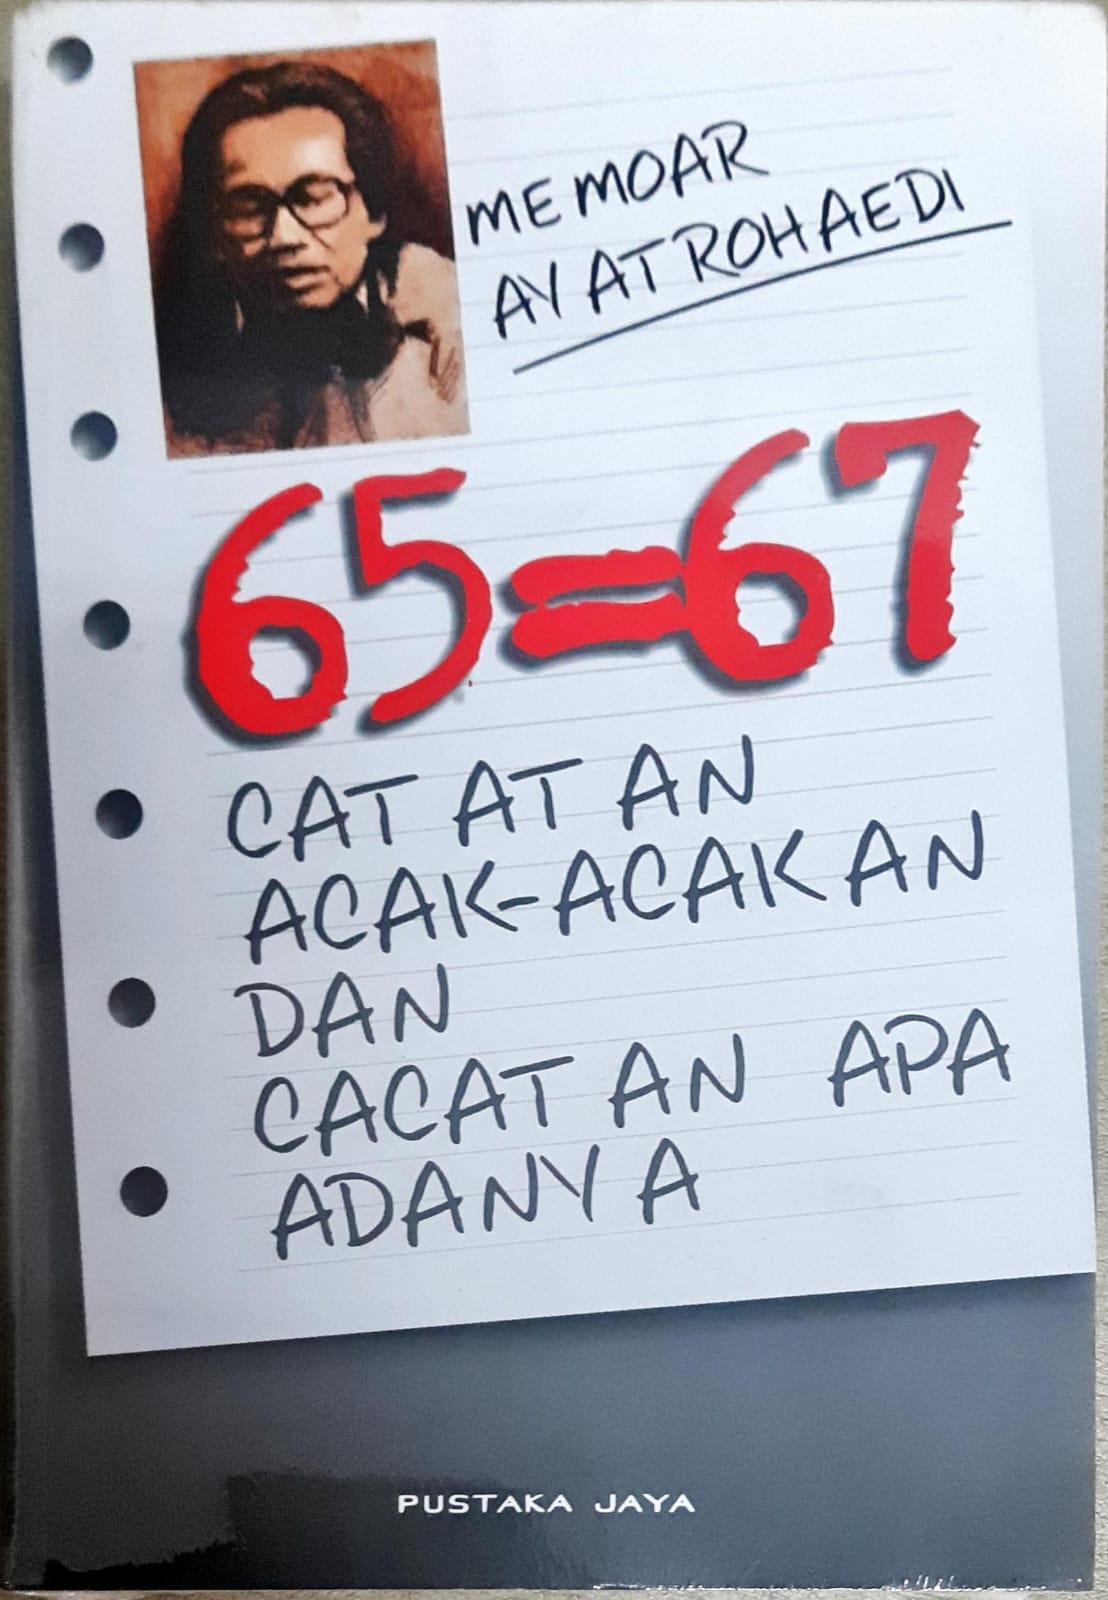 MEMOAR
AYATROHAEDI
65=67
CATATAN
ACAK-ACAKAN
DAN
CACATAN APA
ADANYA
PUSTAKA JAYA